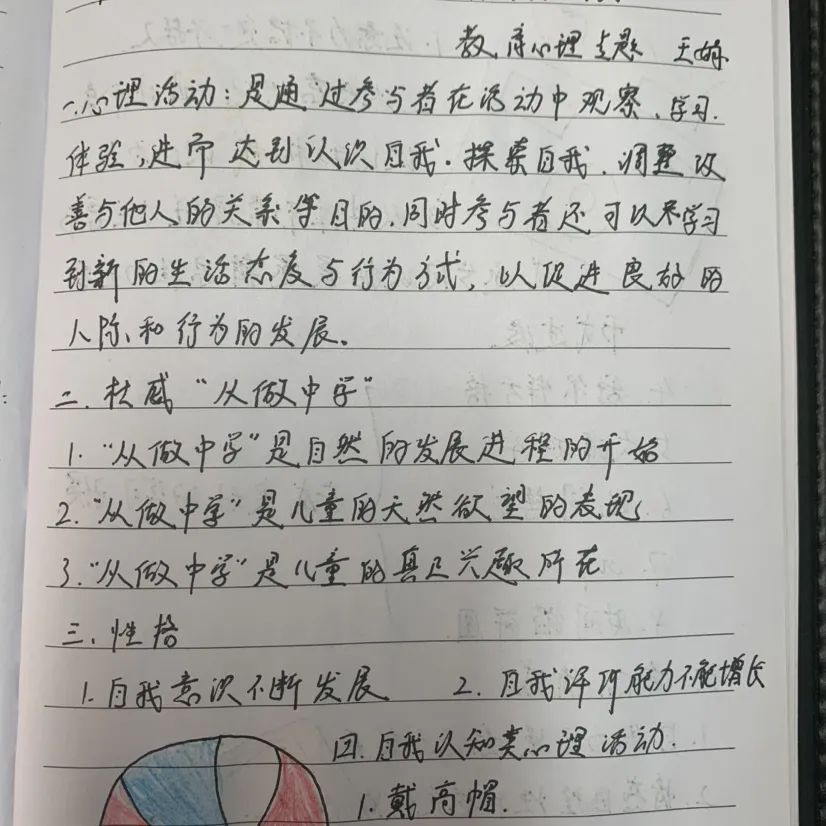 教育心理专题 王婷
一、心理活动：是通过参与者在活动中观察、学习、
体验，进而达到认识自我、探索自我、调整改
善与他人的关系等目的，同时参与者还可以来学习
到新的生活态度与行为方式，以促进良好的
人际、和行为的发展。
二、杜威“从做中学”
1.“从做中学”是自然的发展进程的开始
2.“从做中学”是儿童的天然欲望的表现
3.“从做中学”是儿童的真正兴趣所在
三、性格
1.自我意识不断发展 2.自我评价能力不能增长
四.自我认知类心理活动.
1.戴高帽.